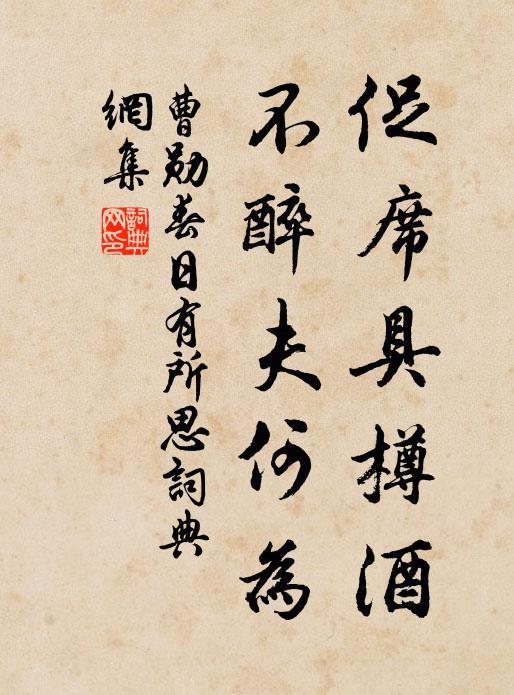 促席具樽酒
不醉夫何為
曹勛春日有所思詞典
網集
詞典網印